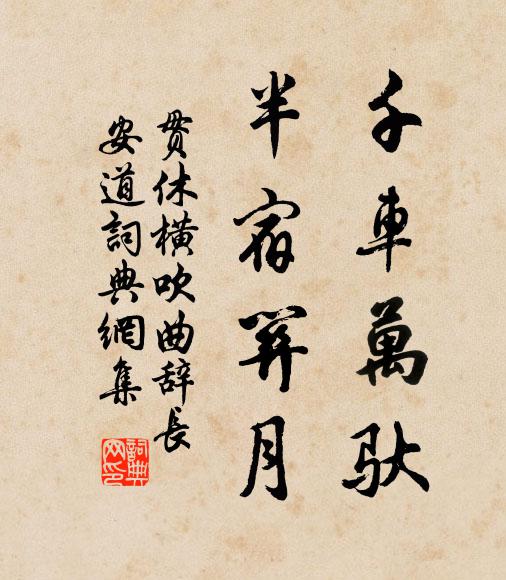 千車萬馱
半宿關月
貫休橫吹曲辞長
安道詞典網集
詞典网印